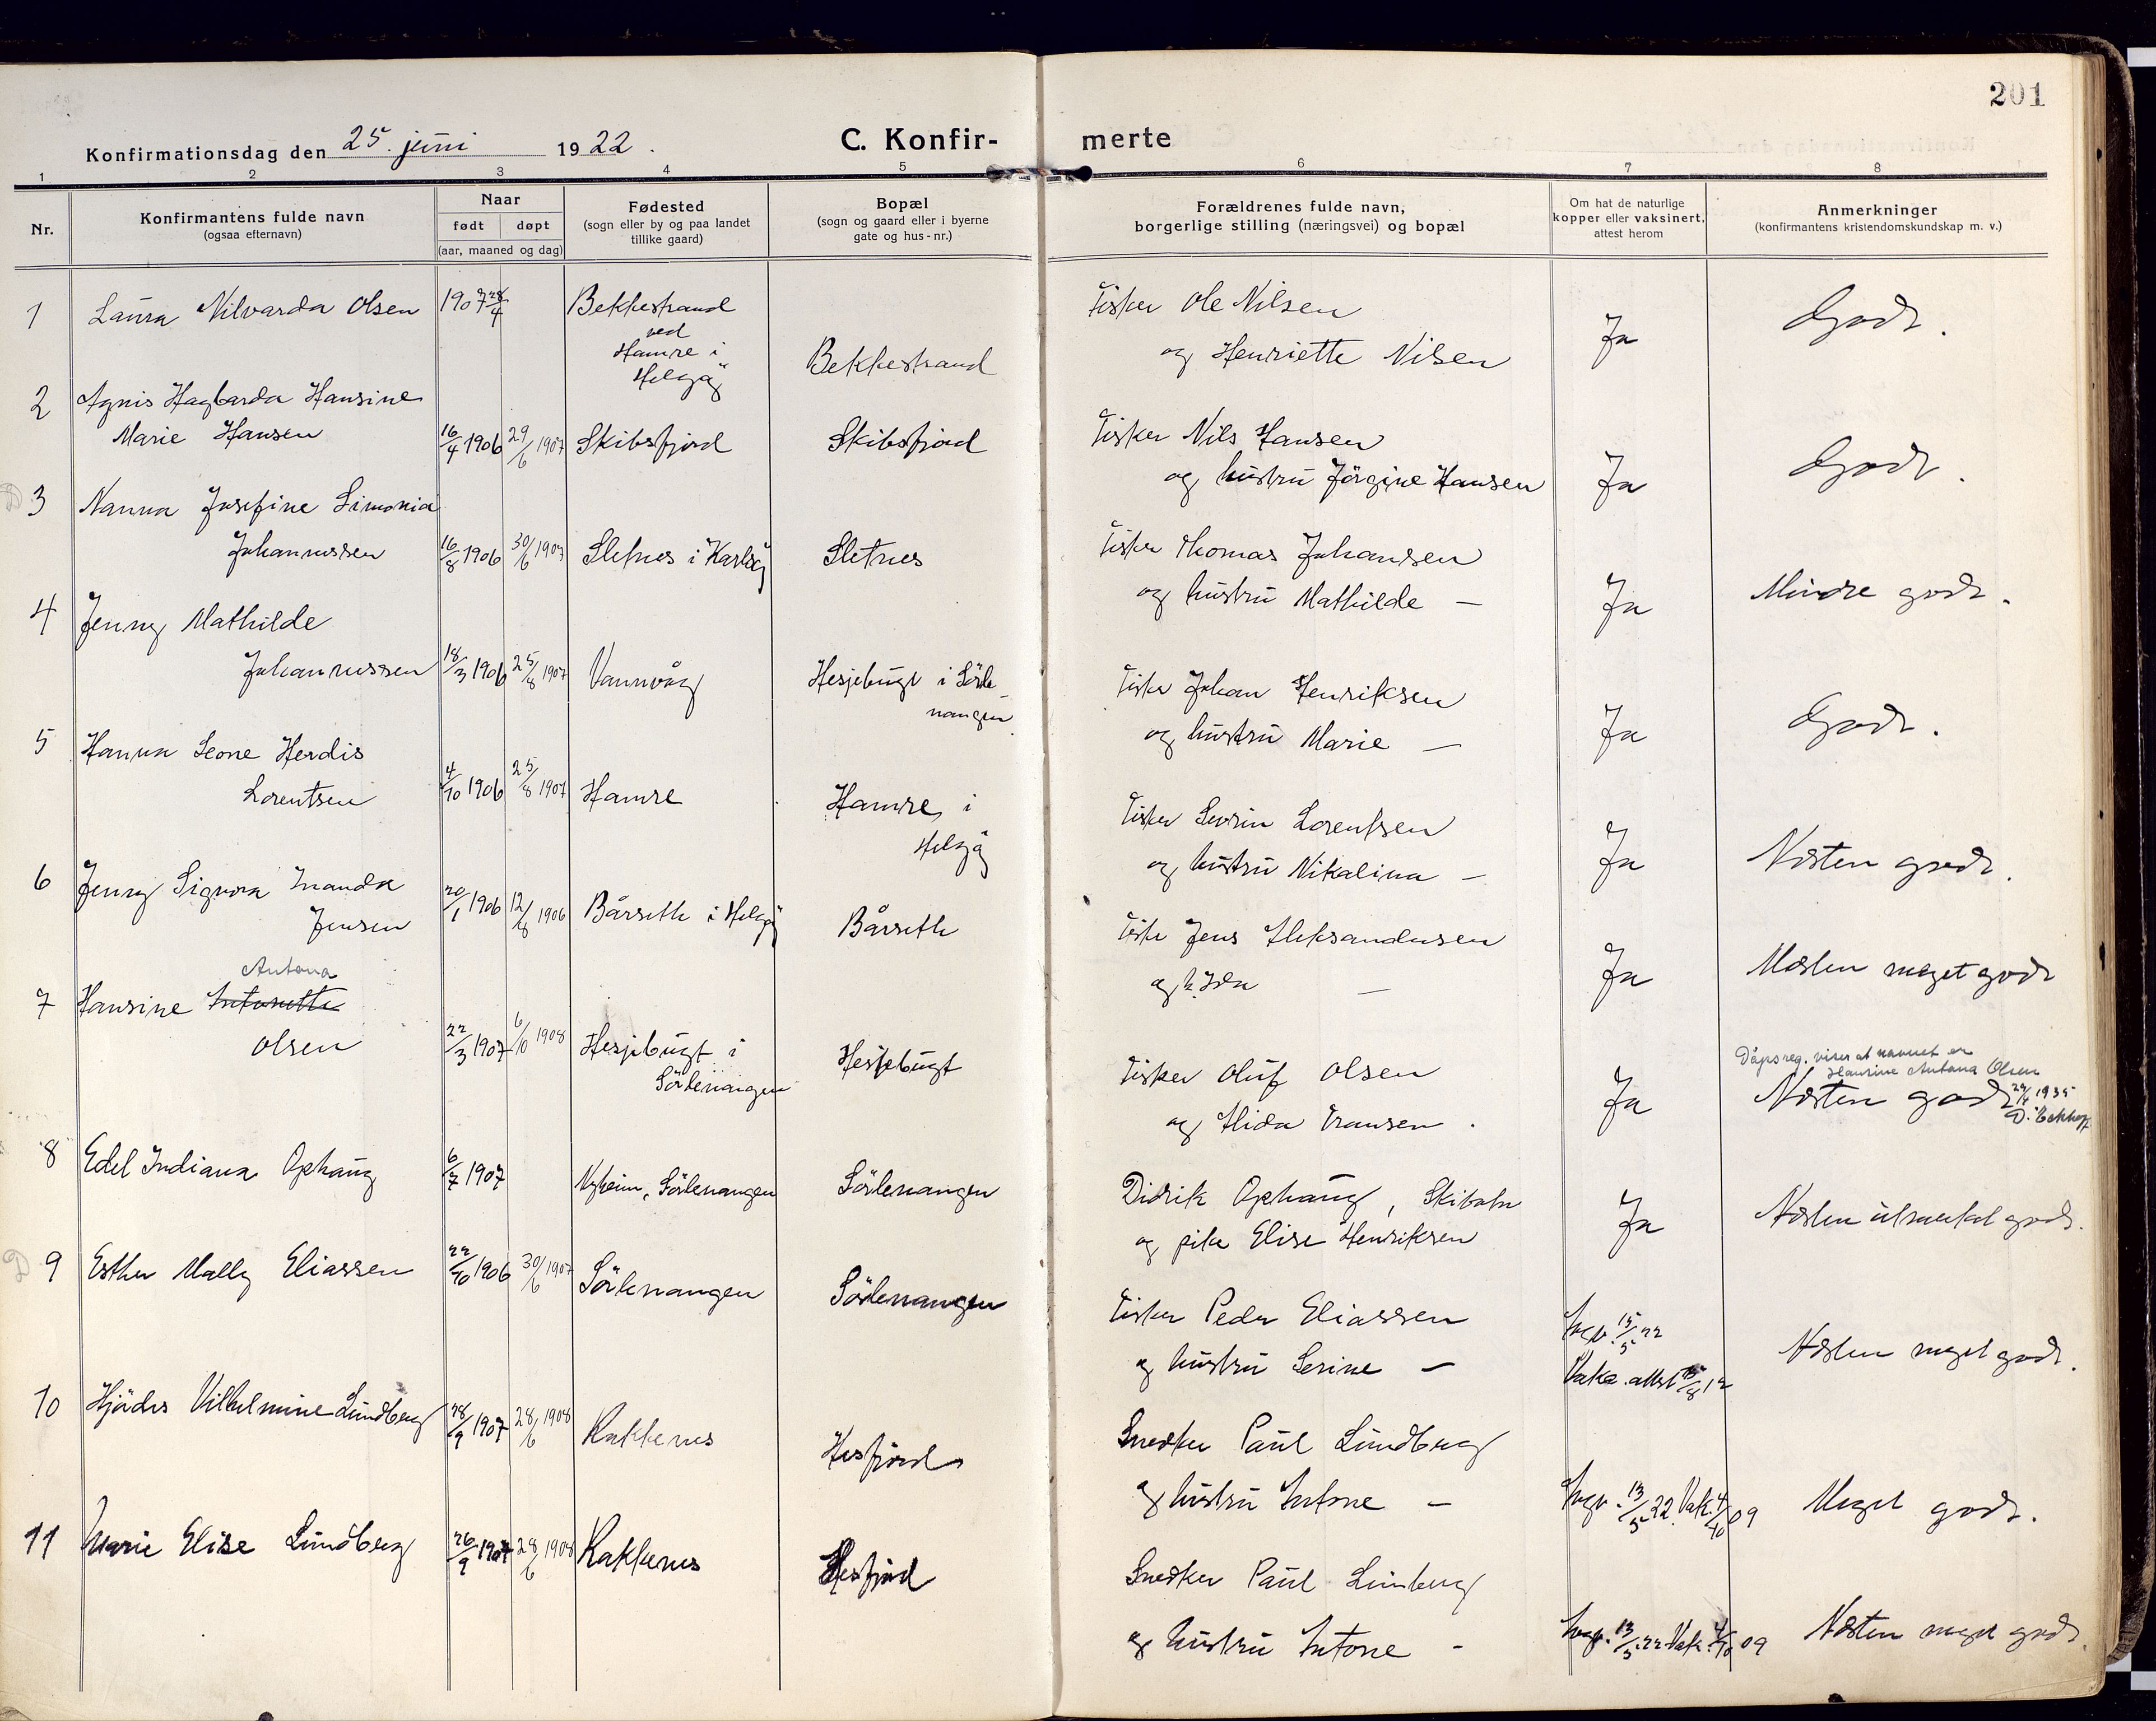 201
Konfirmationsdag den 25. juni 1922.
C. Konfir-merte
1 2 3 4 5 6 7 8
Nr.
Konfirmantens fulde navn
(ogsaa efternavn)
Naar
født døpt
(aar, maaned og dag)
Fødested
(sogn eller by og paa landet
tillike gaard)
Bopæl
(sogn og gaard eller i byerne
gate og hus-nr.)
Forældrenes fulde navn,
borgerlige stilling (næringsvei) og bopæl
Om hat de naturlige
kopper eller vaksinert,
attest herom
Anmerkninger
(konfirmantens kristendomskundskap m. v.)
1 Laura Nilvarda Olsen 1907 28/4 Bekkestrand
ved
Hamre i
Helgöy
Bekkestrand
Fisker Ole Nilsen
og Henriette Nilsen
Ja
Godt.
2 Agnis Hagbarda Hansine
Marie Hansen 16/4 1906 29/6 1907 Skibsfjord Skibsfjord
Fisker Nils Hansen
og hustru Jörgine Hansen
Ja
Godt.
3 Nanna Josefine Simonia
Johannessen 16/8 1906 30/6 1907 Sletnes i Karlsöy Sletnes
Fisker Thomas Johansen
og hustru Mathilde —
Ja
Mindre godt.
4 Jenny Mathilde
Johannessen 18/3 1906 25/8 1907 Vannvåg Hesjebugt i Sörle
nangen
Fisker Johan Henriksen
og hustru Marie —
Ja
Godt.
5 Hanna Leone Herdis
Lorentsen 4/10 1906 25/8 1907 Hamre Hamre i
Helgöy
Fisker Sevrin Lorentsen
og hustru Nikalina —
Ja
Næsten godt.
6 Jenny Signora Inanda
Jensen 20/1 1906 12/8 1906 Bårseth i Helgöy Bårseth
Fisker Jens Aleksandersen
og h. Ida —
Ja
Næsten meget godt
Antona
7 Hansine Antonette
Olsen 22/3 1907 6/10 1908 Hesjebugt i
Sörlenangen
Hesjebugt
Fisker Oluf Olsen
og Alida Fransen.
Ja
Dåpsreg. viser at navnet er
Hansine Antona Olsen
Næsten godt 1935
8 Edel Indiana Ophaug 6/7 1907 Nyheim, Sörlenangen Sörlenangen
Didrik Ophaug, Skibotn
og pike Elise Henriksen
Ja
Næsten utmerket godt.
9 Esther Mally Eliassen 22/10 1906 30/6 1907 Sörlenangen Sörlenangen
Fisker Peder Eliassen
og hustru Serine —
15/5 22
Vaks. attest
Næsten meget godt.
10 Hjördis Vilhelmine Lundberg 28/9 1907 28/6 1908 Kakkenes Hesfjord
Snedker Paul Lundberg
og hustru Antone —
13/5 22 Vak. 4/10 09
Meget godt.
11 Marie Elise Lundberg 26/9 1907 28/6 1908 Kakkenes Hesfjord
Snedker Paul Limberg
og hustru Antone -
13/5 22 Vak. 4/10 09
Næsten meget godt.